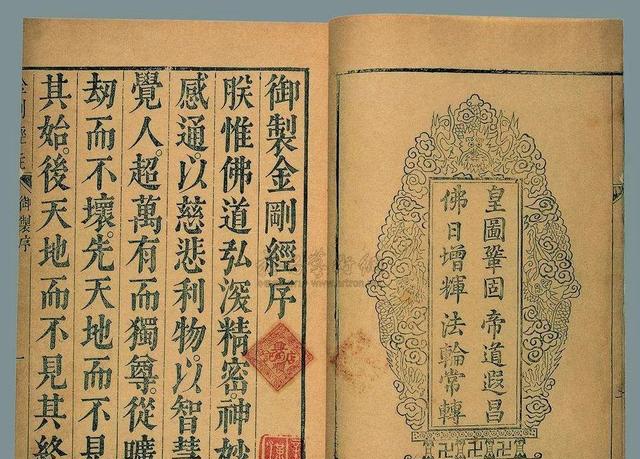 皇圖鞏固帝道遐昌
佛日增輝法輪常轉
御製金剛經序
朕惟佛道弘深精密神妙
感通。以慈悲利物。以智慧
覺人。超萬有而獨尊。從曠
劫而不壞。先天地而不見
其始。後天地而不見其終
御製序